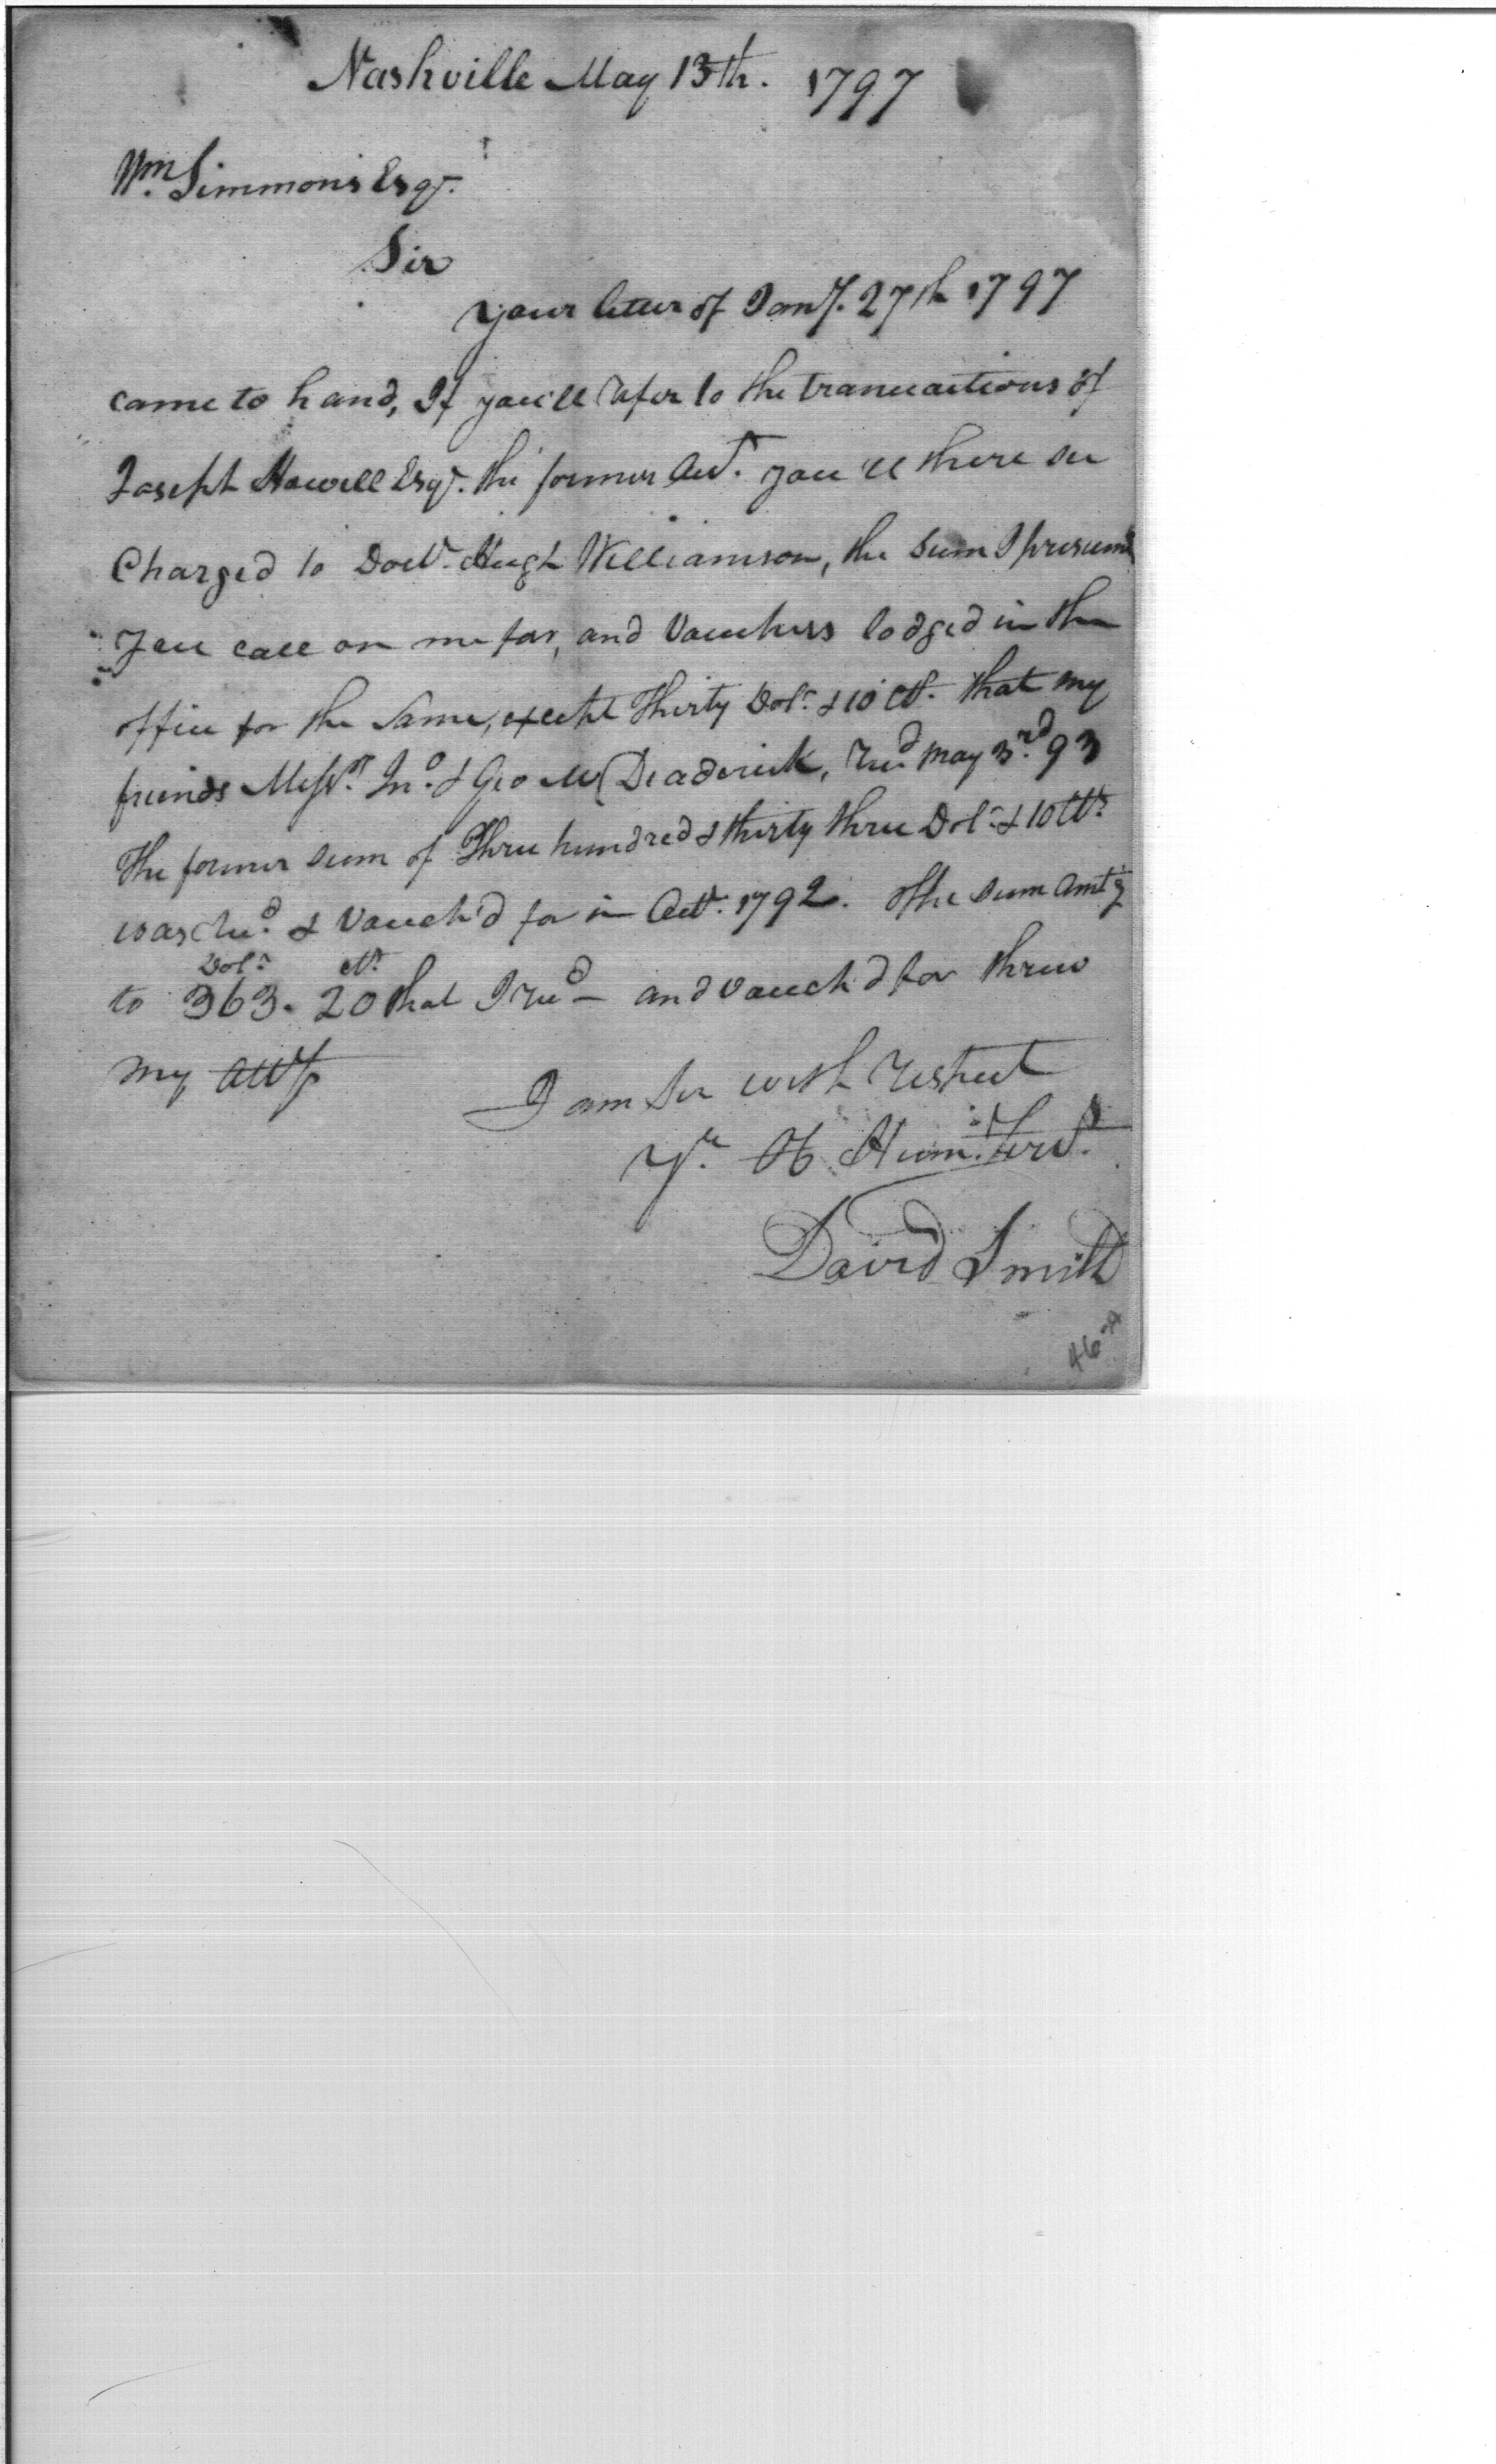 Nashville May 13th. 1797
Wm. Simmons Esqr.
Sir
your letter of Jany. 27th 1797
came to hand, If you'll refer to the transactions of
Joseph Howell Esqr. the former Act. you'll there see
Charged to Doctr. Hugh Williamson, the sum I presume
You call on me for, and Vouchers lodged in the
office for the Same, except Thirty Dols. & 10 Cts. that my
friends Messrs. Jno. & Geo M Deaderick, recd May 3rd. 93
The former sum of Three hundred & thirty three Dols. & 10 Cts
was recd. & Vouch'd for in Octr. 1792. The sum amtg
Dols. Cts.
to 363. 20 that I recd - and vouch'd for threw
my atty
I am Sir with respect
Yr. Ob Hum. Servt.
David Smith